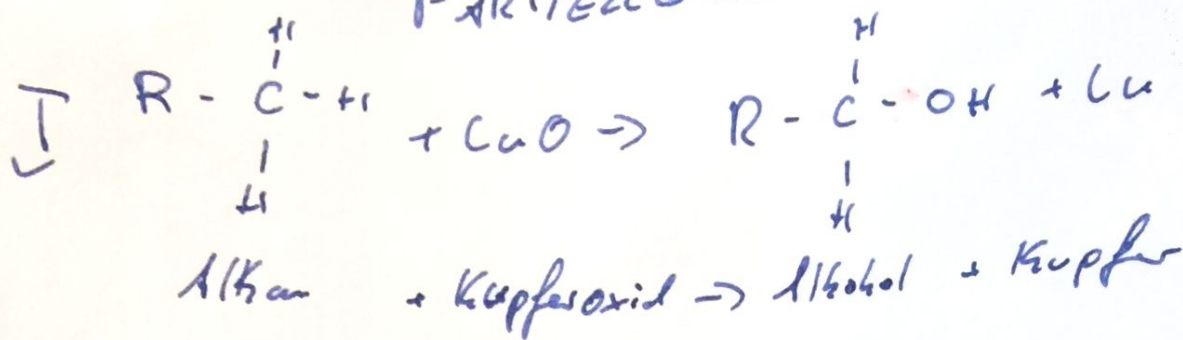 H H
I R - C - H + CuO -> R - C - OH + Cu
H H
Alkan + Kupferoxid -> Alkohol + Kupfer